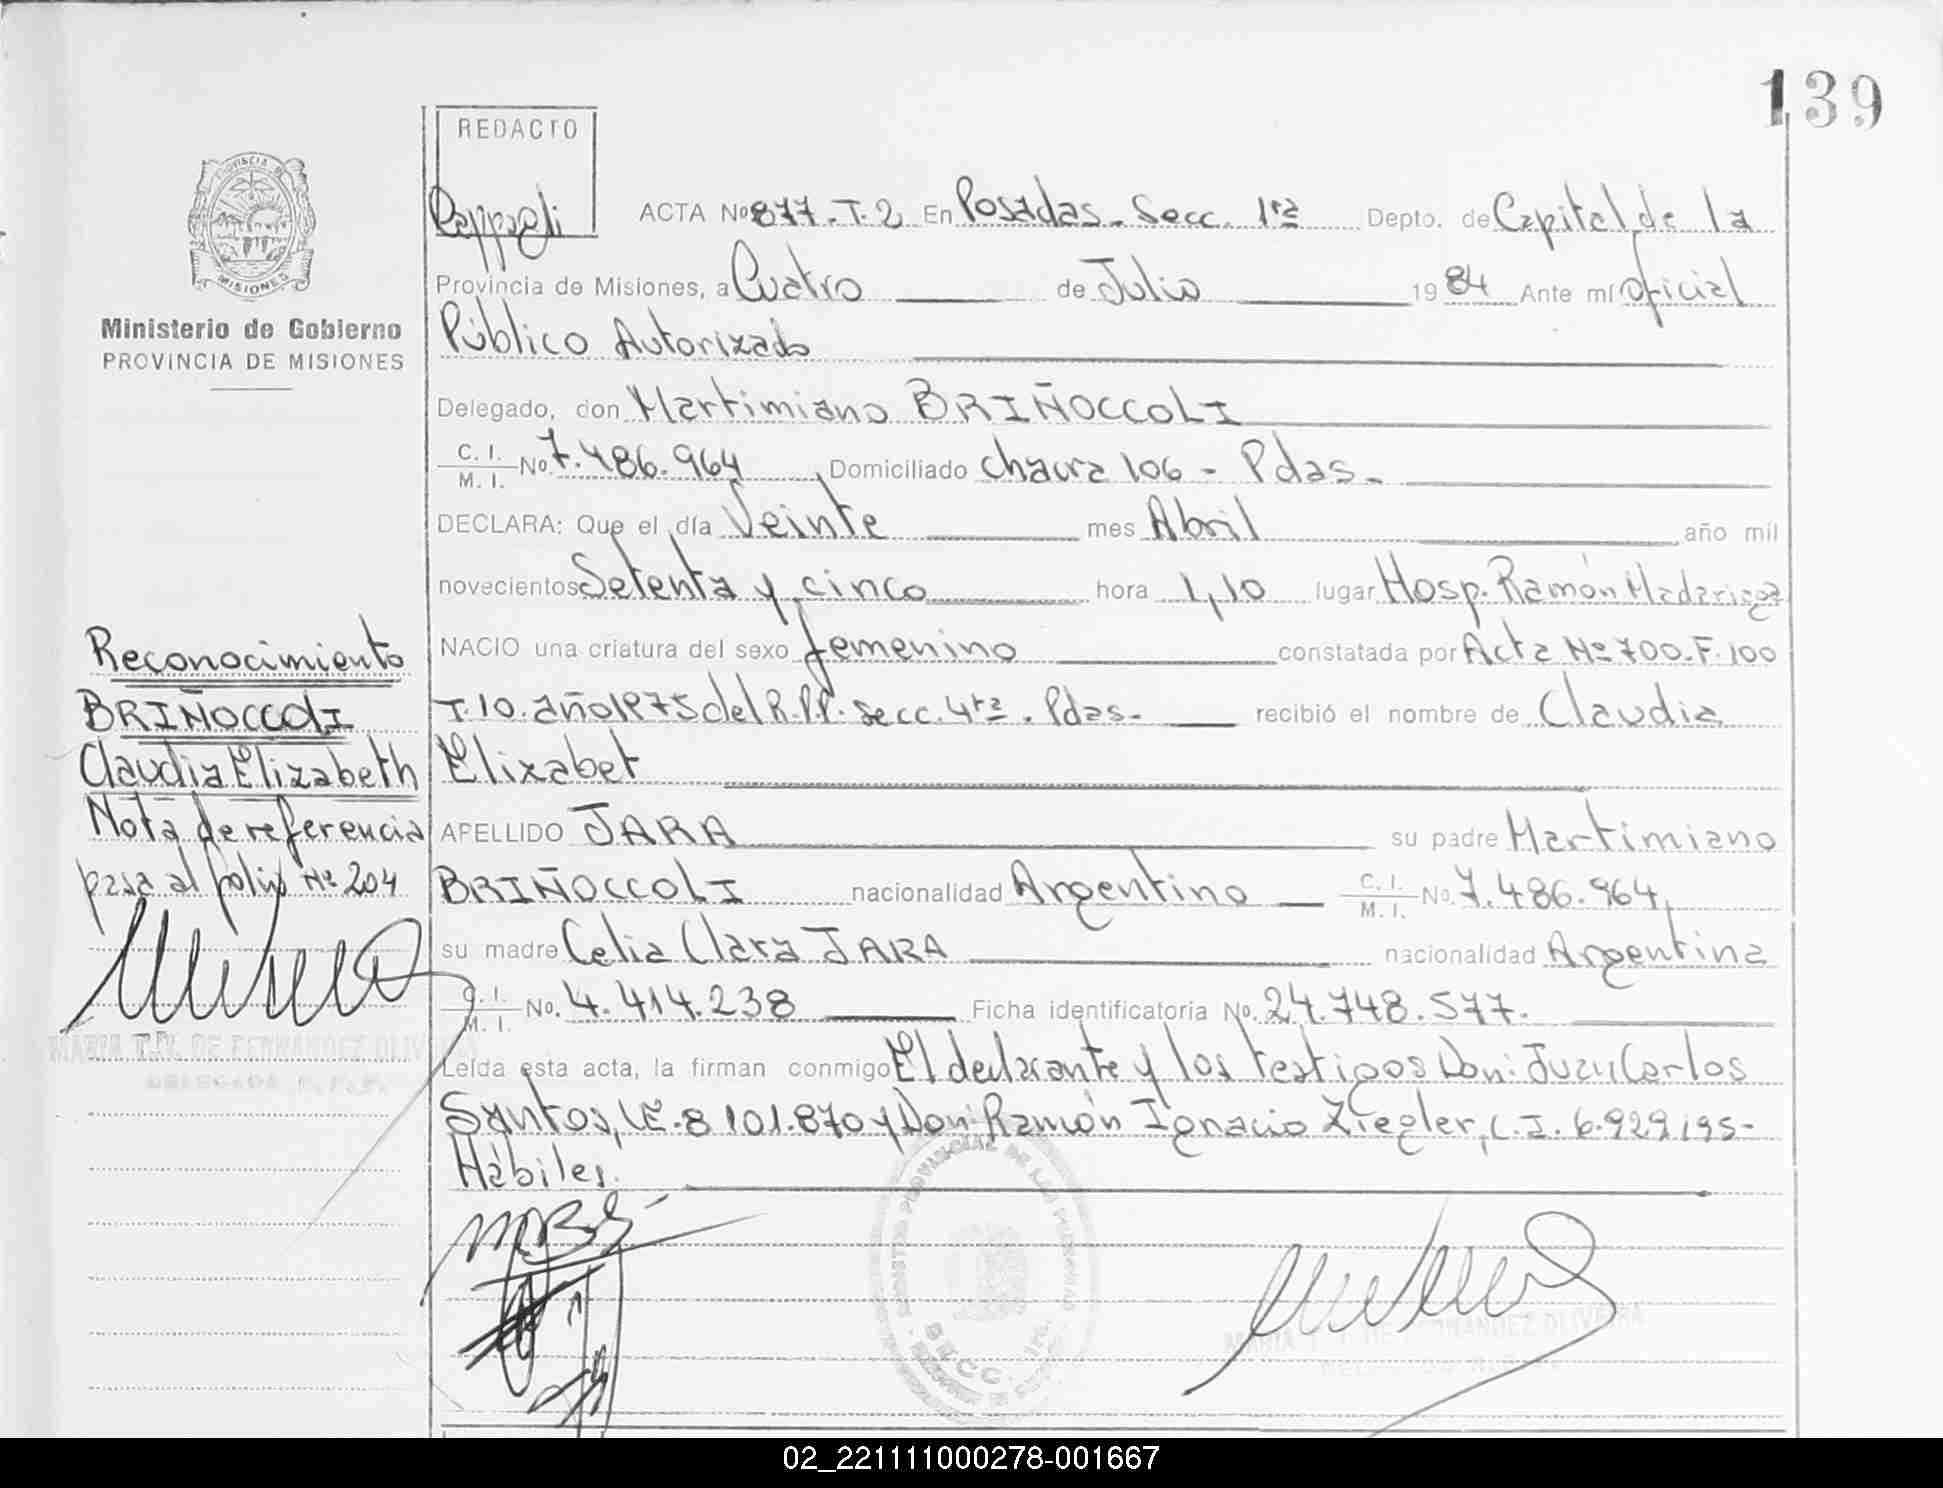 139
REDACTO
PROVINCIA DE
MISIONES
Ministerio de Gobierno
PROVINCIA DE MISIONES
ACTA Nº 877. T. 2 En Posadas. Secc. 1ra Depto. de Capital de la
Provincia de Misiones, a Cuatro de Julio 19 84 Ante mí Oficial
Público Autorizado
Delegado, don Martimiano BRIÑOCCOLI
C. I. / M. I. Nº 7.486.964 Domiciliado Chacra 106 - Pdas.
DECLARA: Que el día Veinte mes Abril año mil
novecientos Setenta y cinco hora 1,10 lugar Hosp. Ramón Madariaga
NACIO una criatura del sexo femenino constatada por Acta Nº 700. F. 100
T. 10. año 1975 del R.P.P. Secc. 4ta. Pdas. recibió el nombre de Claudia
Elizabet
APELLIDO JARA su padre Martimiano
BRIÑOCCOLI nacionalidad Argentino C. I. / M. I. No. 7.486.964,
su madre Celia Clara JARA nacionalidad Argentina
C. I. / M. I. No. 4.414.238 Ficha identificatoria No. 24.748.577.
Leída esta acta, la firman conmigo El declarante y los testigos Don: Juan Carlos
Santos, L.E. 8 101.870 y Don: Ramón Ignacio Ziegler, C.I. 6.929195-
Hábiles.
Reconocimiento
BRIÑOCCOLI
Claudia Elizabeth
Nota de referencia
pasa al folio Nº 204
MARIA T.V. DE FERNANDEZ OLIVEIRA
DELEGADA R.P.P.
REGISTRO PROVINCIAL DE LAS PERSONAS
SECC. 1ra.
MARIA T.V. DE FERNANDEZ OLIVEIRA
02_221111000278-001667